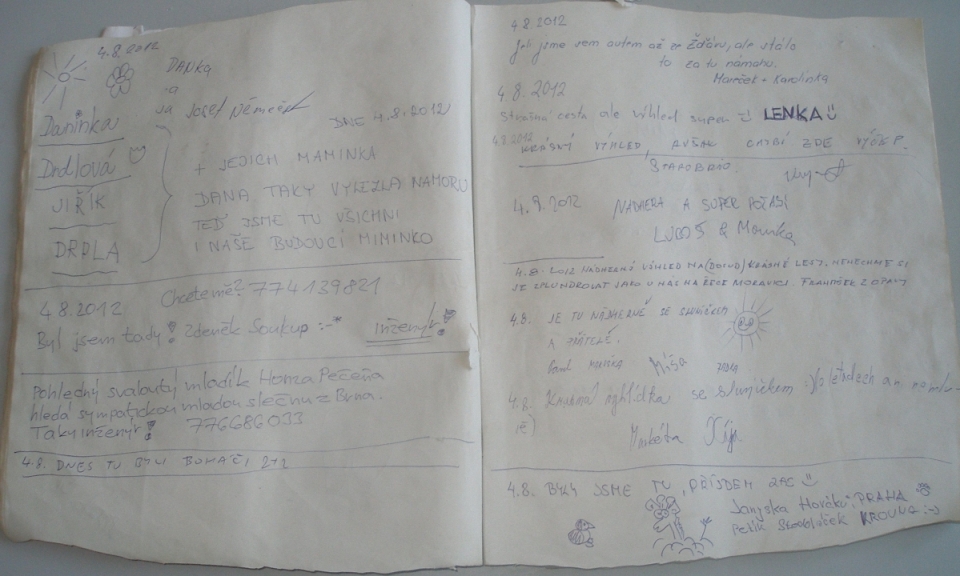 4.8.2012
DANKA
a
Josef Němeček
DNE 4.8.2012
Daninka
Drdlová
JIŘÍK
DRDLA
+ JEJICH MAMINKA
DANA TAKY VYLEZLA NAHORU
TEĎ JSME TU VŠICHNI
I NAŠE BUDOUCÍ MIMINKO
4.8.2012 Chcete mě? 774139821
Byl jsem tady! Zdeněk Soukup :-* Inženýr!
Pohledný svalnatý mladík Honza Pečeňa
hledá sympatickou mladou slečnu z Brna.
Taky inženýr! 776686033
4.8. DNES TU BYLI 2+2
4.8.2012
Jeli jsme sem autem až ze Žďáru, ale stálo
to za tu námahu.
Karolínka
4.8.2012
Strašná cesta ale výhled super :) LENKA :)
4.8.2012 KRÁSNÝ VÝHLED, AVŠAK CHYBÍ ZDE VÝČEP.
STAROBRNO.
4.8.2012 NÁDHERA A SUPER POČASÍ
LUBOŠ & Monika
4.8.2012 NÁDHERNÝ VÝHLED NA (DOSUD) KRÁSNÉ LESY, NENECHME SI
JE ZPLUNDROVAT JAKO U NÁS NA ŘECE MORAVICI. FRANTIŠEK Z OPAVY
4.8. JE TU NÁDHERNĚ SE SLUNÍČKEM
A PŘÁTELÉ.
Míša
4.8. Krásná vyhlídka se sluníčkem :)
Markéta
4.8. BYLY JSME TU, PŘIJDEM ZAS :)
Horáků: PRAHA
KROUNA :-)